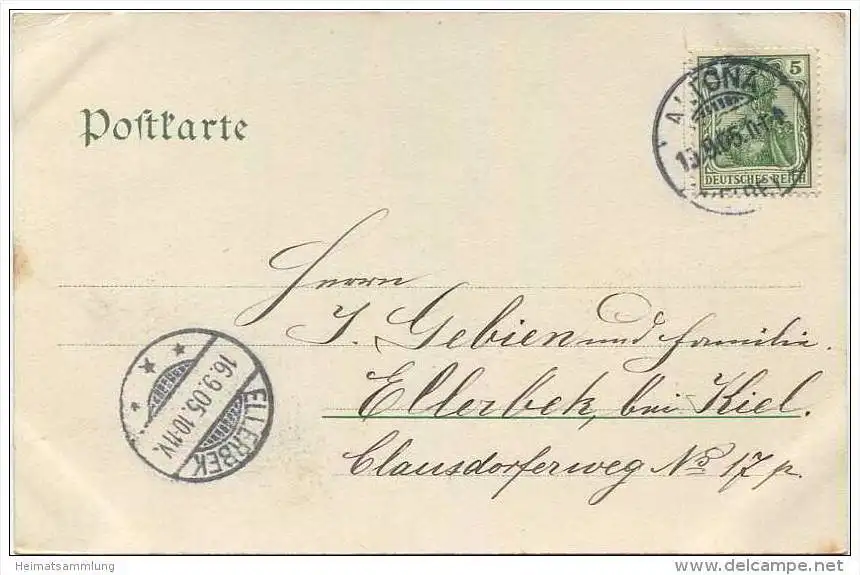 Postkarte
5
DEUTSCHES REICH
ALTONA
Herrn
J. Gebien und Familie.
Ellerbek, bei Kiel.
Clausdorferweg No 17 p.
16.9.05.10-11V.
ELLERBEK
Heimatsammlung
delcampe.net